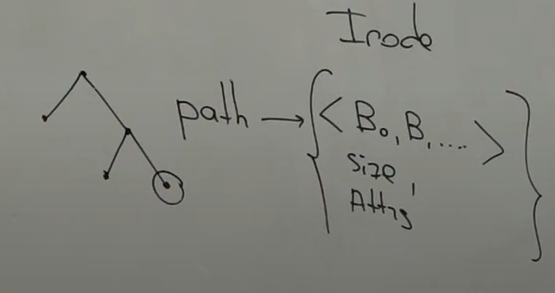 Inode
path → { < B0, B1, .... > }
Size
Attrs